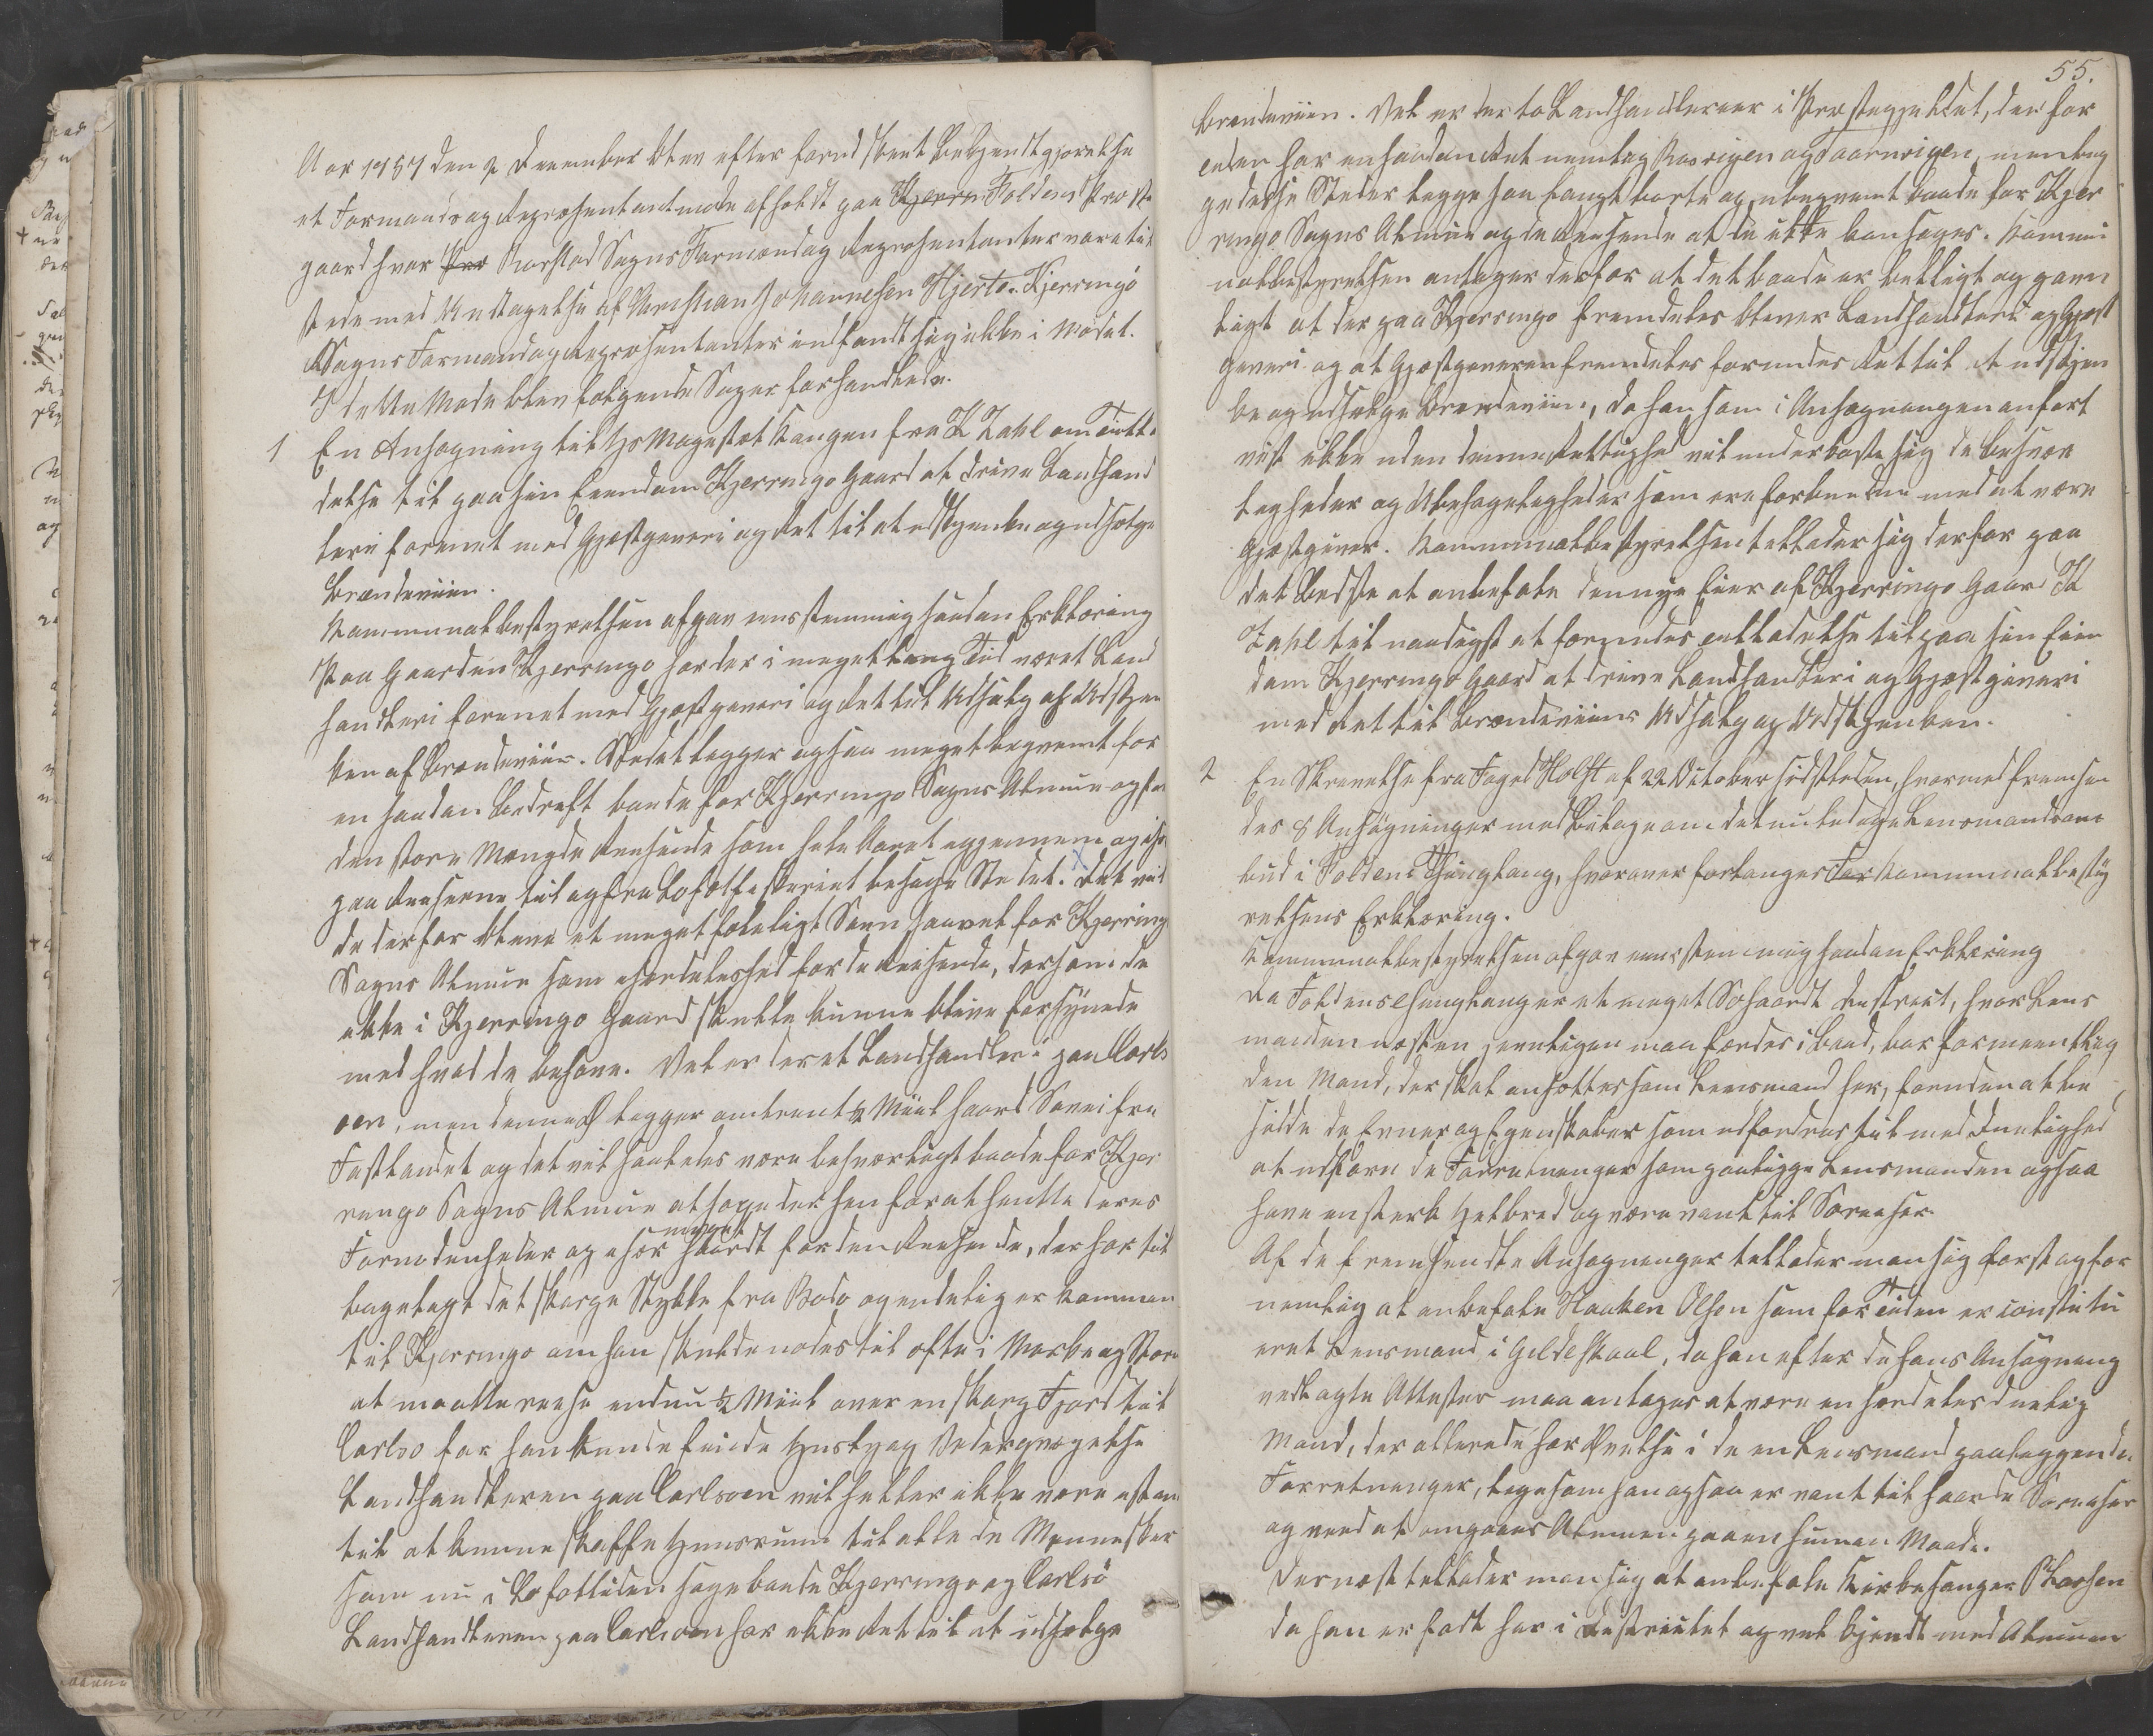 Aar 1857 den 2 December blev efter forud skeet Bekjendtgjørelse
et Formands og Repræsentantmøde afholdt paa Kjerrin Foldens Præste
gaard hvor Præ Rørstad Sogns Formænd og Repræsentanter vare til
stede med Undtagelse af Christian Johannesen Hjertø. Kjerringø
Sogns Formænd og Repræsentanter indfandt sig ikke i Mødet.
I dette Møde blev følgende Sager forhandlede.
1 En Ansøgning til Hs Majestæt Kongen fra K Zahl om Tilla
delse til paa sin Eiendom Kjerringø Gaard at drive Landhand
leri forenet med Gjæstgeveri og Ret til at udskjenke og udsælge
Brændeviin.
Kommunalbestyrelsen afgav eenstemmig saadan Erklæring
Paa Gaarden Kjerringø har der i meget lang Tid været Land
handleri forenet med Gjæstgeveri og Ret til Udsalg og Udskjen
ken af Brændeviin. Stedet ligger ogsaa meget beqvemt for
en saadan Bedrift baade for Kjerringø Sogns Almue og for
den store Mængde Reisende som hele Aaret igjennem og især
paa Reiserne til og fra Lofotfiskeriet besøge Stedet. Det vil
de derfor blive et meget føleligt Savn saavel for Kjerringø
Sogns Almue som i særdeleshed for de Reisende, dersom de
ikke i Kjerringø Gaard skulle kunne blive forsynede
med hvad de behøve. Vel er der et Landhandleri paa Carls
øen, men denne Ø ligger omtrent ½ Miil haard Søvei fra
Fastlandet og det vil saaledes være besværligt baade for Kjer
ringø Sogns Almue at søge derhen for at hente deres
Fornødenheder og især meget haardt for den Reisende, der har til
bagelagt det skarpe Stykke fra Bodø og endelig er kommen
til Kjerringø om han skulde nødes til ofte i Mørke og Storm
at maatte reise endnu ½ Miil over en skarp Fjord til
Carlsø før han kunde finde Husly og Vederqvægelse
Landhandleren paa Carlsøen vil heller ikke være istand
til at kunne skaffe Huusrum til alle de Mennesker
som nu i Lofottiden søge baade Kjerringø og Carlsö
Landhandleren paa Carlsøen har ikke Ret til at udsælge
55.
Brændeviin. Vel er der to Landhandlerier i Præstegjeldet, der for
uden har en saadan Ret nemlig Røsvigen og Taarnvigen, men beg
ge disse Steder ligge saa langt borte og ubeqvemt baade for Kjer
ringø Sogns Almue og de Reisende at de ikke kan søges. Kommu
nalbestyrelsen antager derfor at det baade er billigt og gavn
ligt at der paa Kjerringø fremdeles bliver Landhandleri og Gjæst
geveri og at Gjæstgeveren fremdeles forundes Ret til at udskjen
ke og udsælge Brændeviin, da han som i Ansøgningen anført
vist ikke uden denne Rettighed vil underkaste sig de Besvær
ligheder og Ubehageligheder som ere forbundne med at være
Gjæstgiver. Kommunalbestyrelsen tillader sig derfor paa
det Bedste at anbefale den nye Eier af Kjerringø Gaard K
Zahl til naadigst at forundes Tilladelse til paa sin Eien
dom Kjerringø Gaard at drive Landhandleri og Gjæstgiveri
med Ret til Brændeviins Udsalg og Udskjenken.
2 En Skrivelse fra Foged Holst af 22 October sidstleden, hvormed fremsen
des 8 Ansøgninger med Bilage om det nu ledige Lensmandsom
bud i Foldens Thinglaug, hvorover forlanges For Kommunalbesty
relsens Erklæring.
Kommunalbestyrelsen afgav eenstemmig saadan Erklæring
Da Foldens Thinglaug er et meget Søhaardt Distrikt, hvor Lens
manden næsten jevnligen maa færdes i Baad, bør formeentlig
den Mand, der skal ansættes som Lensmand her, foruden at be
sidde de Evner og Egenskaber som udfordres til med Duelighed
at udføre de Forretninger som paaligge Lensmanden ogsaa
have en stærk Helbred og være vant til Søreiser.
Af de fremsendte Ansøgninger tillader man sig først og for
nemlig at anbefale Haaken Olsen som for Tiden er constitu
eret Lensmand i Gildeskaal, da han efter de hans Ansøgning
vedlagte Attester maa antages at være en særdeles duelig
Mand, der allerede har Øvelse i de en Lensmand paaliggende
Forretninger, ligesom han ogsaa er vant til haarde Søreiser
og veed at omgaaes Almuen paa en human Maade.
Dernæst tillader man sig at anbefale Kirkesanger P Larsen
da han er født her i Districtet og vel kjendt med Almuen